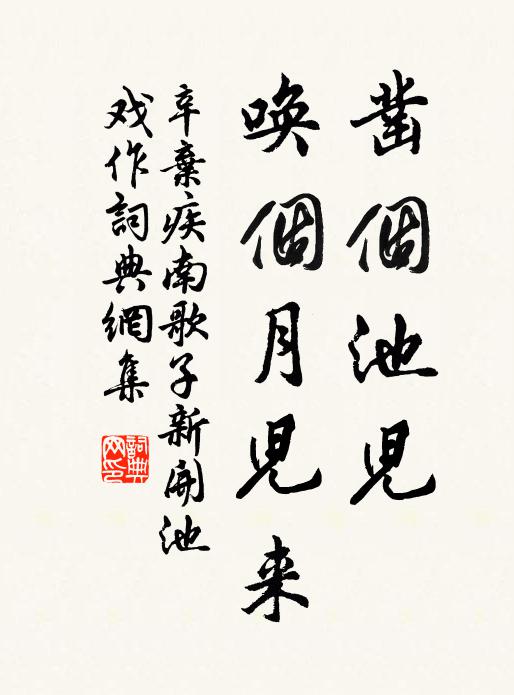 凿個池児
唤個月児来
辛棄疾南歌子新開池
戏作詞典網集
詞典网印